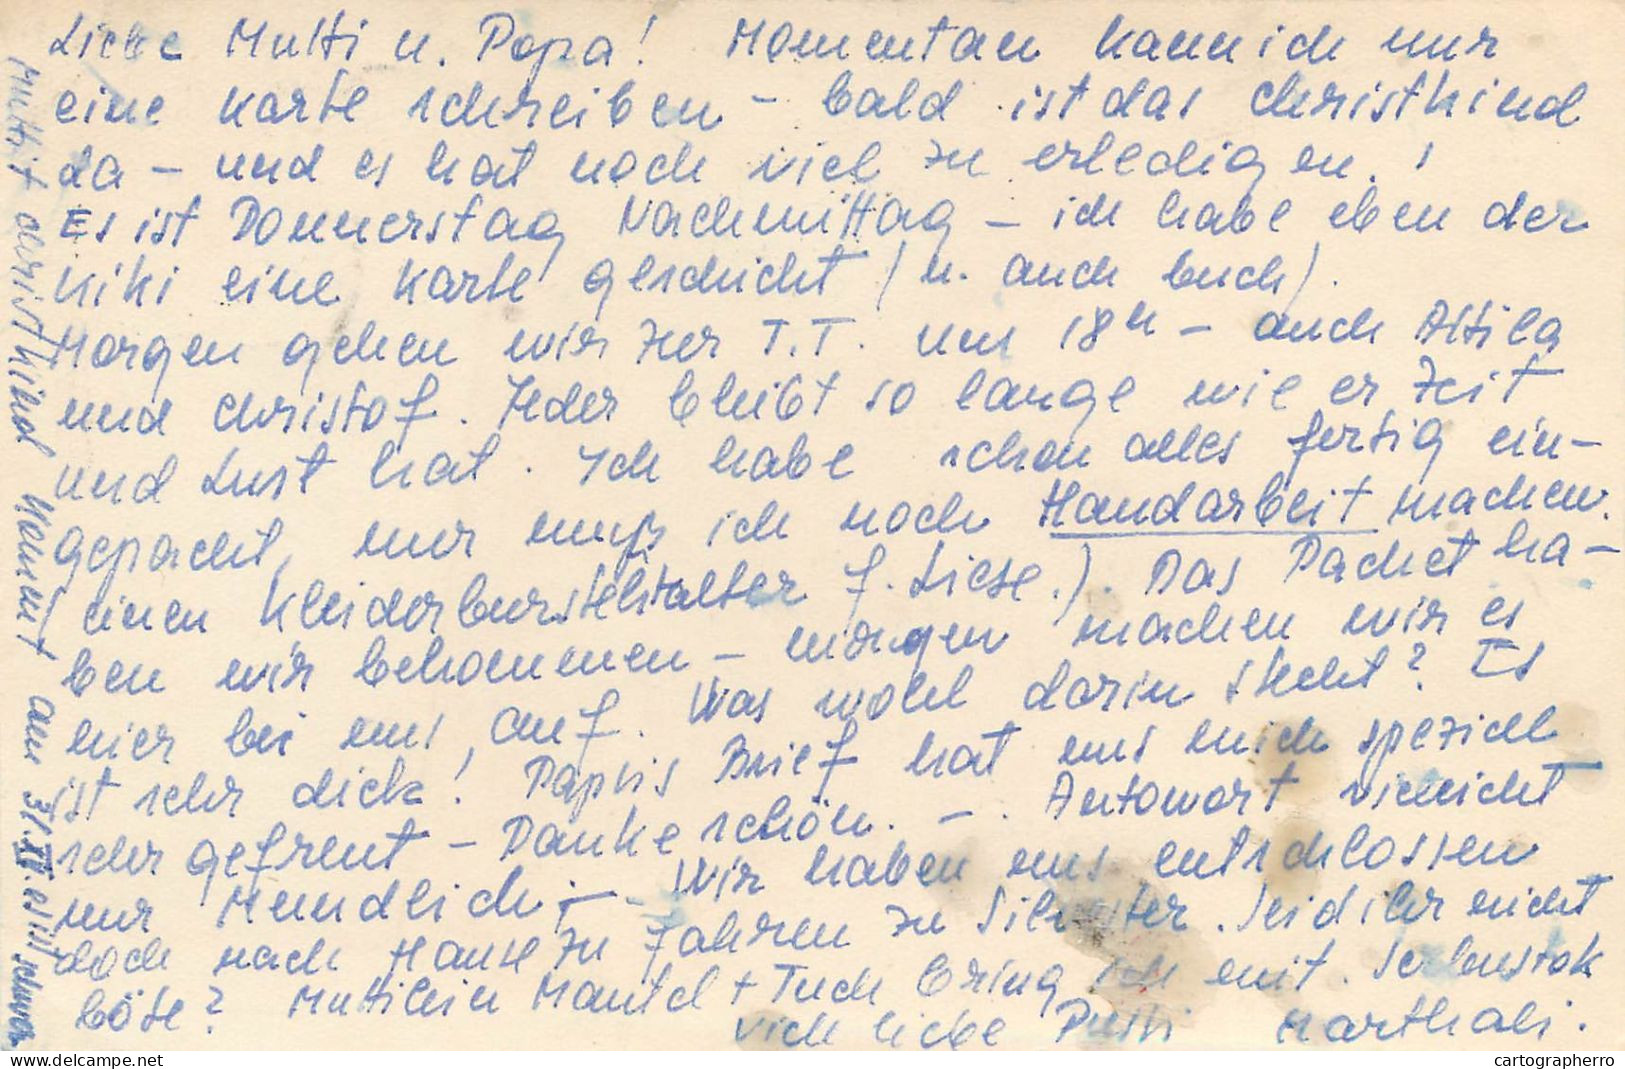 Liebe Mutti u. Papa! Momentan kann ich nur
eine Karte schreiben – bald ist das Christkind
da – und es hat noch viel zu erledigen!
Es ist Donnerstag Nachmittag – ich habe eben der
Kiki eine Karte geschickt (u. auch Euch).
Morgen gehen wir zur T.T. um 18h – auch Attila
und Christof. Jeder bleibt so lange wie er Zeit
und Lust hat. Ich habe schon alles fertig ein-
gepackt, nur muß ich noch Handarbeit machen.
(einen Kleiderbürstehalter f. Liese.). Das Packet ha-
ben wir bekommen – morgen machen wir es
hier bei uns, auf. Was wohl darin steckt? Es
ist sehr dick! Papris Brief hat uns mich speziell
sehr gefreut – Danke schön. –. Antowort vielleicht
nur Mündlich. – Wir haben uns entschlossen
doch nach Hause zu fahren zu Silvester. Seid ihr nicht
böse? Muttilein Mantel + Tuch bring ich mit. Serbustok
viele liebe Pussi Marthali.
Muttit Christkind kommt am 31.XII. es ist schwer
cartographerro